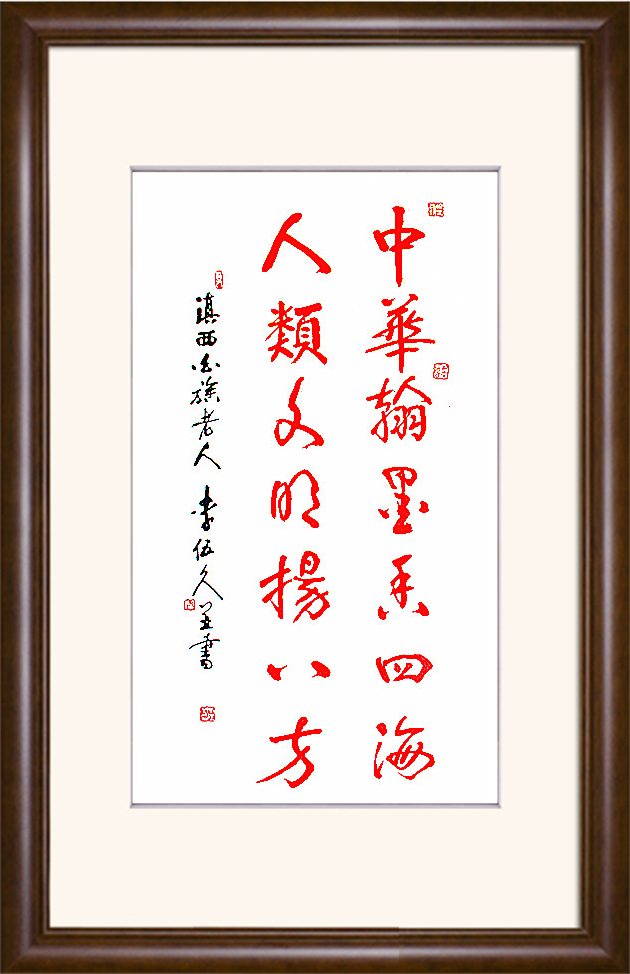 中華翰墨香四海
人類文明揚八方
滇西白族老人 李伍久並書